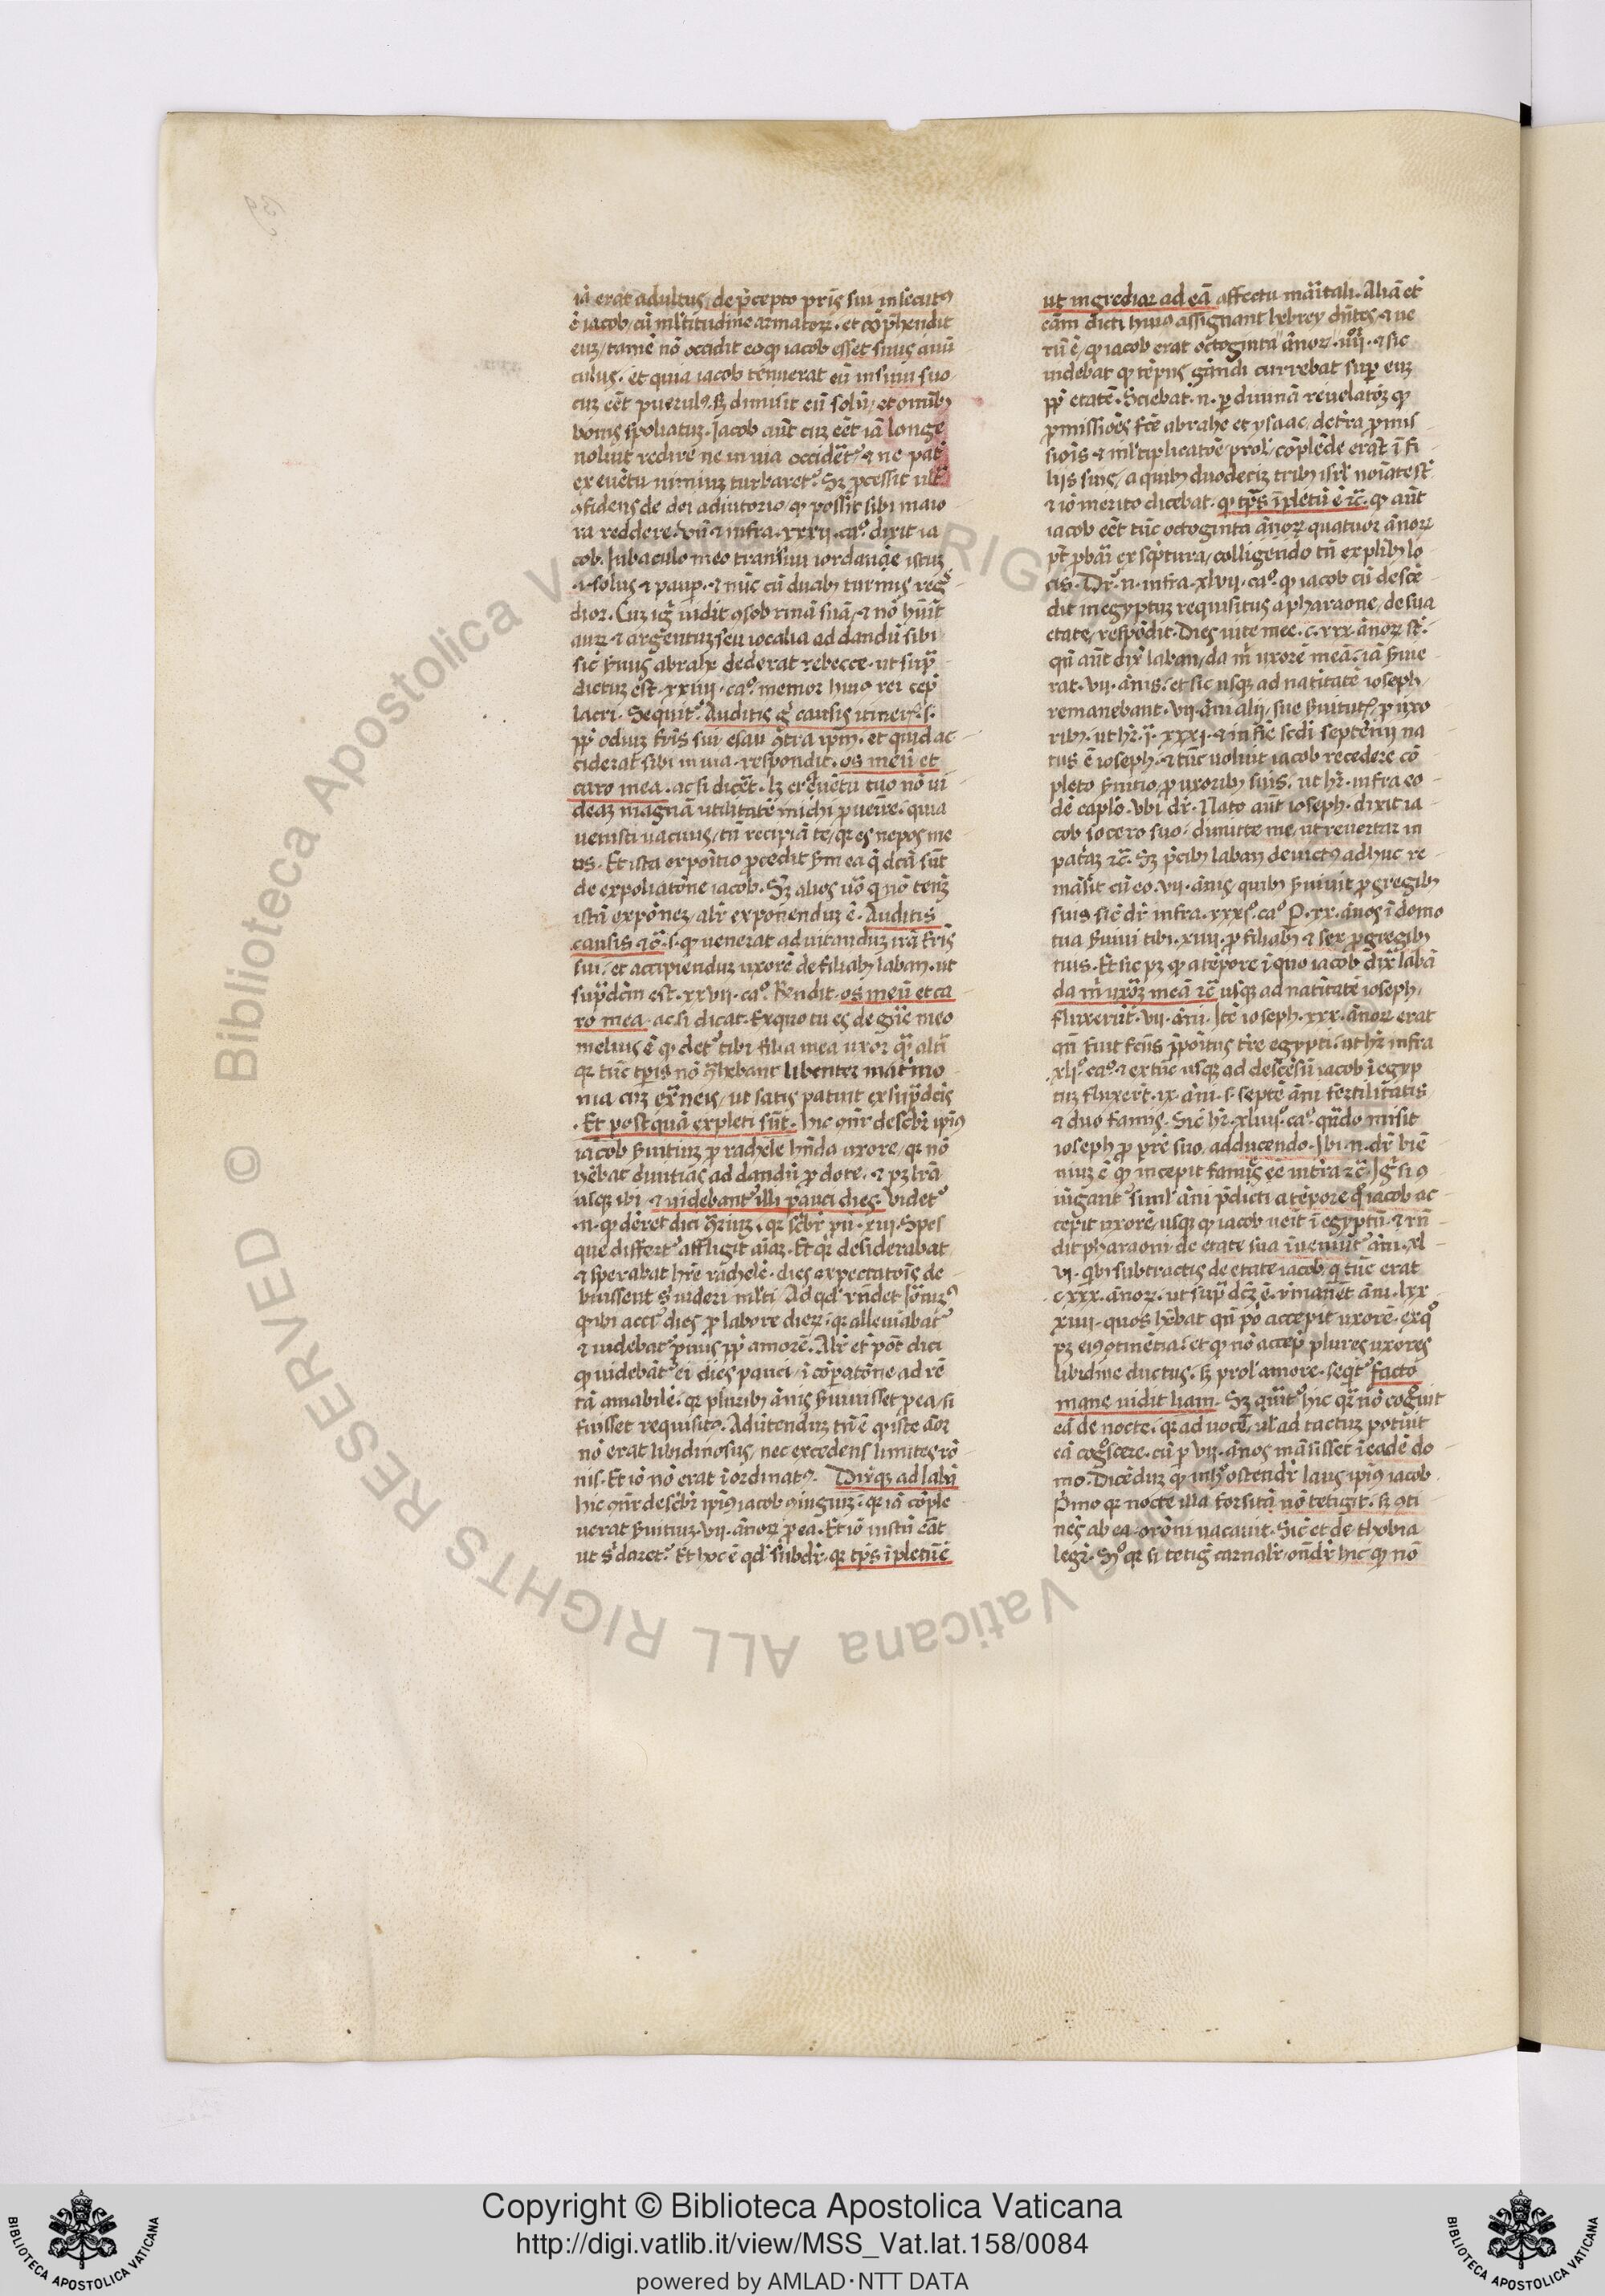 iā erat adultus, de p̄cepto pris̄ sui insecutꝰ
ē iacob / cū ml̓titudine armatoꝝ · et cōp̄hendit
euꝫ / tamē nō occidit eoqꝫ iacob esset suus auū
culus · et quia iacob tenuerat eū in sinu suo
cuꝫ eēt puerulꝰ. sꝫ dimisit eū solū / et omībꝫ
bonis spoliatuꝫ. Jacob aūt cuꝫ eēt iā longe
noluit redire ne in via occideret᷑ · ⁊ ne pat᷑
ex euētu nimiuꝫ turbaret᷑. Sꝫ p̄cessit ult᷑
ꝯfidens de dei adiutorio / qꝫ posset sibi maio
ra reddere. vn̄ ⁊ infra · xxxij · caº. dixit ia
cob. In baculo meo transiui iordanē istuꝫ
.i. solus ⁊ paup̄ · ⁊ nūc cū duabꝫ turmis reg᷑
dior. Cuꝫ igr̄ vidit ꝯsobrinā suā / ⁊ nō hūit
auꝝ ⁊ argentuꝫ seu iocalia ad dandū sibi
sic̄ suus abrahe dederat rebecce · ut sup̄
dictuꝫ est · xxiiij · caº. memor huiꝰ rei cep̄
lacri. Sequit᷑. Auditis g̊ causis itineris. s.
pp̄ odiuꝫ fris̄ sui esau ꝯtra ip̄m · et quid ac
ciderat sibi in via · respondit · os meū et
caro mea · ac si dicēt · lꝫ ex euētu tuo nō vi
deaꝫ magnā utilitatē michi p̄uenire / quia
uenisti vacuus / tn̄ recipiā te / qꝛ es nepos me
us. Et ista expoīto p̄cedit s̄m ea q̄ dc̄a sūt
de expoliatōne iacob. Sꝫ alios uō q̄ nō tenēt
istā exponeꝫ · alr̄ exponenduꝫ ē. Auditis
causis ⁊c̄. s. qꝫ venerat ad vitanduꝫ irā fris̄
sui / et accipienduꝫ uxorē de filiabꝫ laban · ut
sup̄ dc̄m est · xxvij · caº. Rn̄dit · os meū et ca
ro mea · ac si dicat. Ex quo tu es de gn̄e meo
melius ē qꝫ det᷑ tibi filia mea uxor q̄ᵃ alt᷑i
qꝛ tūc tp̄is nō ꝯt̄hebant libenter mat̄mo
nia cuꝫ ext̄neis / ut satis patuit ex sup̄dc̄is
. Et postquā expleti sūt. hic ꝯnr̄ describr̄ ip̄iꝰ
iacob s̄uitiuꝫ p̄ rachele hn̄da uxore / qꝛ nō
hēbat diuitias ad dandū p̄ dote · ⁊ pꝫ lr̄a
usqꝫ ibi · ⁊ videbant᷑ illi pauci dies. Videt᷑
.n. qꝫ deret dici ꝯ̄riuꝫ · qꝛ scbr̄ pū · xiij. Spes
que differt᷑ affligit aīaꝫ. Et qꝛ desiderabat
⁊ sperabat hr̄e rachelē · dies expectatōis de
buissent s̄ videri ml̓ti. Ad qd̓ rn̄det
q̄ ibi accr̄ dies p̄ labore dieꝝ · qꝛ alleuiabat᷑
⁊ videbat᷑ p̄uus pp̄ amorē. Alr̄ et̄ pōt dici
qꝫ videbāt᷑ ei dies pauci / ī cōp̄atōne ad rē
tā amabilē / qꝛ pluribꝫ ānis s̄uiuisset p̄ ea / si
fuisset requisitꝰ. Aduertenduꝫ tn̄ ē qꝫ iste aōr
nō erat libidinosus / nec excedens limites rō
nis. Et iō nō erat īordinatꝰ. Dixitqꝫ ad labā
hic ꝯnr̄ describr̄ ip̄iꝰ iacob ꝯiugiuꝫ / qꝛ iā cōple
uerat s̄uitiuꝫ · vij · ānoꝝ p̄ ea. Et iō iustū erat
ut s̄ daret᷑. Et hoc ē qd̓ subdr̄ · qꝛ tp̄s īpletū ē
ut ingrediar ad eā affectu maritali. Aliā et̄
cām dicti huiꝰ assignant hebrey dicētes / ⁊ ue
rū ē / qꝫ iacob erat octoginta ānoꝝ · iiij · ⁊ sic
videbat qꝫ tēpus gn̄andi currebat sup̄ euꝫ
pp̄ etatē. Sciebat .n. p̄ diuinā reuelatōeꝫ qꝫ
p̄missiōes fc̄e abrahe et ysaac / de tr̄a p̄mis
siōis ⁊ ml̓tiplicatōe prolꝭ / cōplēde erāt ī fi
lijs suis / a quibꝫ duodeciꝫ tribꝫ isrl̓ noīate sūt
⁊ iō merito dicebat · qꝫ tp̄s īpletū ē ⁊c̄. qꝫ aūt
iacob eēt tūc octoginta ānoꝝ quatuor ānoꝝ
pōt p̄bari ex sc̄ptura / colligendo tn̄ ex plibꝫ lo
cis. Dr̄ .n. infra · xlvij · caº. qꝫ iacob cū descē
dit in egyptuꝫ requisitus a pharaone / de sua
etate / respōdit. Dies vite mee · c.xxx · ānoꝝ sūt.
qn̄ aūt dix̄ laban / da m̄ uxorē meā / iā s̄uie
rat · vij · ānis / et sic usqꝫ ad natitatē ioseph /
remanebant · vij · āni alij / sue s̄uitutꝭ p̄ uxo
ribꝫ · ut hr̄ · ī · xxxj · ⁊ in fine scd̄i septēnij na
tus ē ioseph · ⁊ tūc voluit iacob recedere cō
pleto s̄uitio / p̄ uxoribꝫ suis / ut hr̄ · infra eo
dē caplo. Vbi dr̄. Nato aut ioseph · dixit ia
cob socero suo / dimitte me / ut reuertar in
patriaꝫ ⁊c̄. Sꝫ p̄cibꝫ laban deuictꝰ adhuc re
māsit cū eo · vij · ānis / quibꝫ s̄uiuit p̄ gregibꝫ
suis sic̄ dr̄ infra · xxxjº. caº. P · xx · ānos ī domo
tua s̄uiui tibi · xiiij · p̄ filiabꝫ ⁊ sex p̄ gregibꝫ
tuis. Et sic pꝫ qꝫ a tēpore ī quo iacob dix̄ labā
da m̄ uxoreꝫ meā ⁊c̄ usqꝫ ad natitatē ioseph /
fluxerūt · vij · āni. Itē ioseph · xxx · ānoꝝ erat
qn̄ fuit fc̄us p̄positus tr̄e egypti / ut hr̄ infra
xljº. caº. ⁊ extūc usqꝫ ad descēsū iacob ī egyp
tuꝫ fluxerūt · ix · āni · s. septē āni fertilitatis
⁊ duo famis. Sic̄ hr̄ · xlviº. caº. qn̄do misit
ioseph p̄ prē suo adducendo. Ibi .n. dr̄ biē
niuꝫ ē qꝫ incepit famis eē in tr̄a ⁊c̄. Igr̄ si ꝯ
iūgant᷑ siml̓ āni p̄dicti a tēpore qº iacob ac
cepit uxorē / usqꝫ qꝫ iacob ueīt ī egyptū · ⁊ rn̄
dit pharaoni de etate sua īueniūt᷑ āni · xl
vj · qibꝫ subtractis de etate iacob / q̄ tūc erat
cxxx · ānoꝝ · ut sup̄ dc̄ꝫ ē · rmanēt āni · lxx
xiiij · quos hēbat qn̄ pº accepit uxorē. ex qº
pꝫ eiꝰ ꝯtinētia / et qꝫ nō accep̄ plures uxores
libidine ductus / sꝫ prolꝭ amore. seqit᷑ facto
mane vidit liam. Sꝫ querit᷑ hic qꝛ nō cogouit
eā de nocte / qꝛ ad vocē / ul̓ ad tactuꝫ potuit
eā cogoscere · cū p̄ vij · ānos māsisset ī eadē do
mo. Dicēduꝫ qꝫ in hº ostendr̄ laus ip̄iꝰ iacob
P̄mo qꝛ nocte illa forsitā nō tetigit / sꝫ ꝯti
nēs ab ea orōni vacauit. Sic̄ et de thobia
legr̄. Sº qꝛ si tetig᷑ carnalr̄ / ondr̄ hic qꝫ nō
Copyright © Biblioteca Apostolica Vaticana
http://digi.vatlib.it/view/MSS_Vat.lat.158/0084
powered by AMLAD·NTT DATA